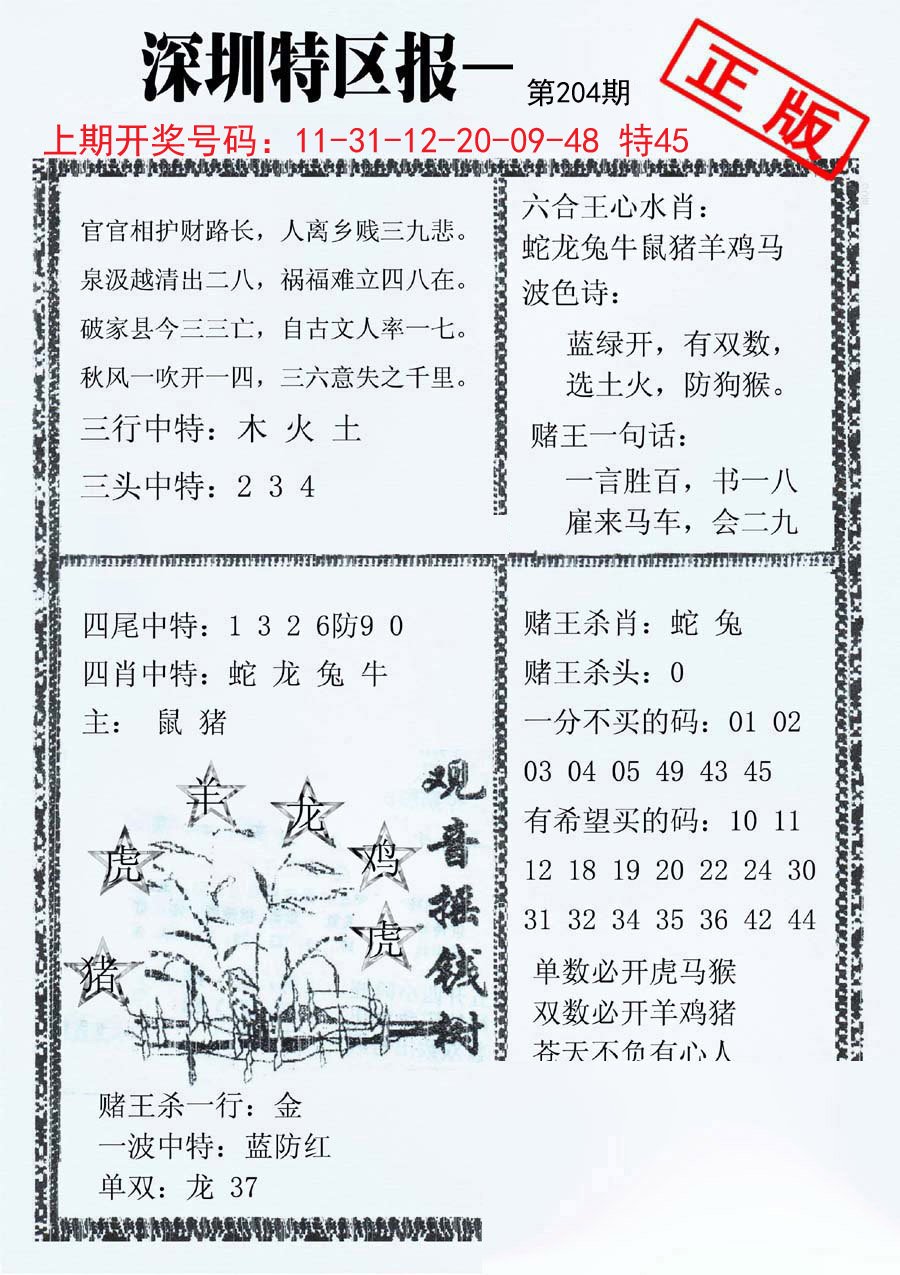 深圳特区报一
第204期
正版
上期开奖号码：11-31-12-20-09-48 特45
官官相护财路长，人离乡贱三九悲。
泉汲越清出二八，祸福难立四八在。
破家县今三三亡，自古文人率一七。
秋风一吹开一四，三六意失之千里。
三行中特：木 火 土
三头中特：2 3 4
六合王心水肖：
蛇龙兔牛鼠猪羊鸡马
波色诗：
蓝绿开，有双数，
选土火，防狗猴。
赌王一句话：
一言胜百，书一八
雇来马车，会二九
四尾中特：1 3 2 6防9 0
四肖中特：蛇 龙 兔 牛
主： 鼠 猪
羊
龙
虎
鸡
虎
猪
观音摇钱树
赌王杀一行：金
一波中特：蓝防红
单双：龙 37
赌王杀肖：蛇 兔
赌王杀头：0
一分不买的码：01 02
03 04 05 49 43 45
有希望买的码：10 11
12 18 19 20 22 24 30
31 32 34 35 36 42 44
单数必开虎马猴
双数必开羊鸡猪
苍天不负有心人